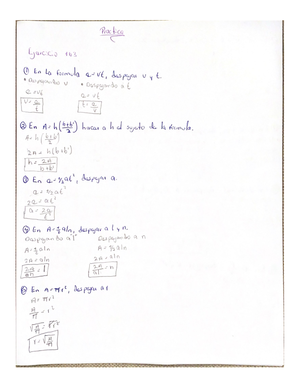 Practica
Ejercicio 103
① En la formula e=vt, despejar v y t.
• Despejando v • Despejando t
e=vt e=vt
v=e/t t=e/v
② En A=h(b+b'/2) hacer a h el sujeto de la fórmula.
A=h(b+b'/2)
2A=h(b+b')
h=2A/b+b'
③ En e=½at², despejar a.
e=½at²
2e=at²
a=2e/t²
④ En A=½aln, despejar a l y n.
Despejando a l Despejando a n
A=½aln A=½aln
2A=aln 2A=aln
2A/an=l 2A/al=n
⑤ En A=πr², despejar a r
A=πr²
A/π=r²
√A/π=√r²
r=√A/π